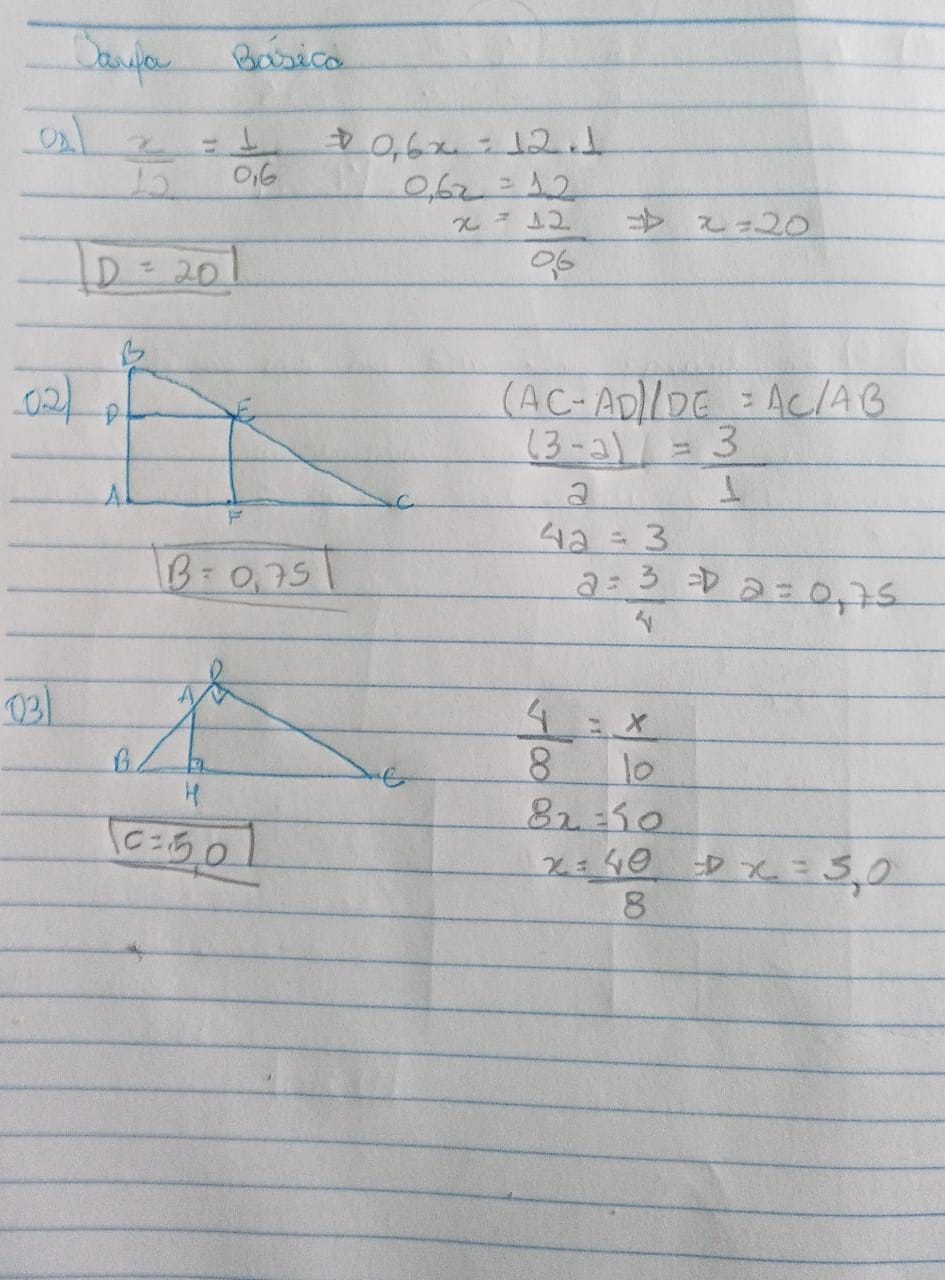 Tarefa Básica
01) x/12 = 1/0,6 ⇒ 0,6x = 12.1
0,6x = 12
x = 12/0,6 ⇒ x = 20
D = 20
02) B D E A F C
(AC-AD)/DE = AC/AB
(3-a)/a = 3/1
4a = 3
a = 3/4 ⇒ a = 0,75
B = 0,75
03) D A B H C
4/8 = x/10
8x = 40
x = 40/8 ⇒ x = 5,0
C = 5,0